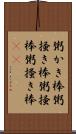 粥かき棒粥
掻き棒粥掻
棒粥掻き棒